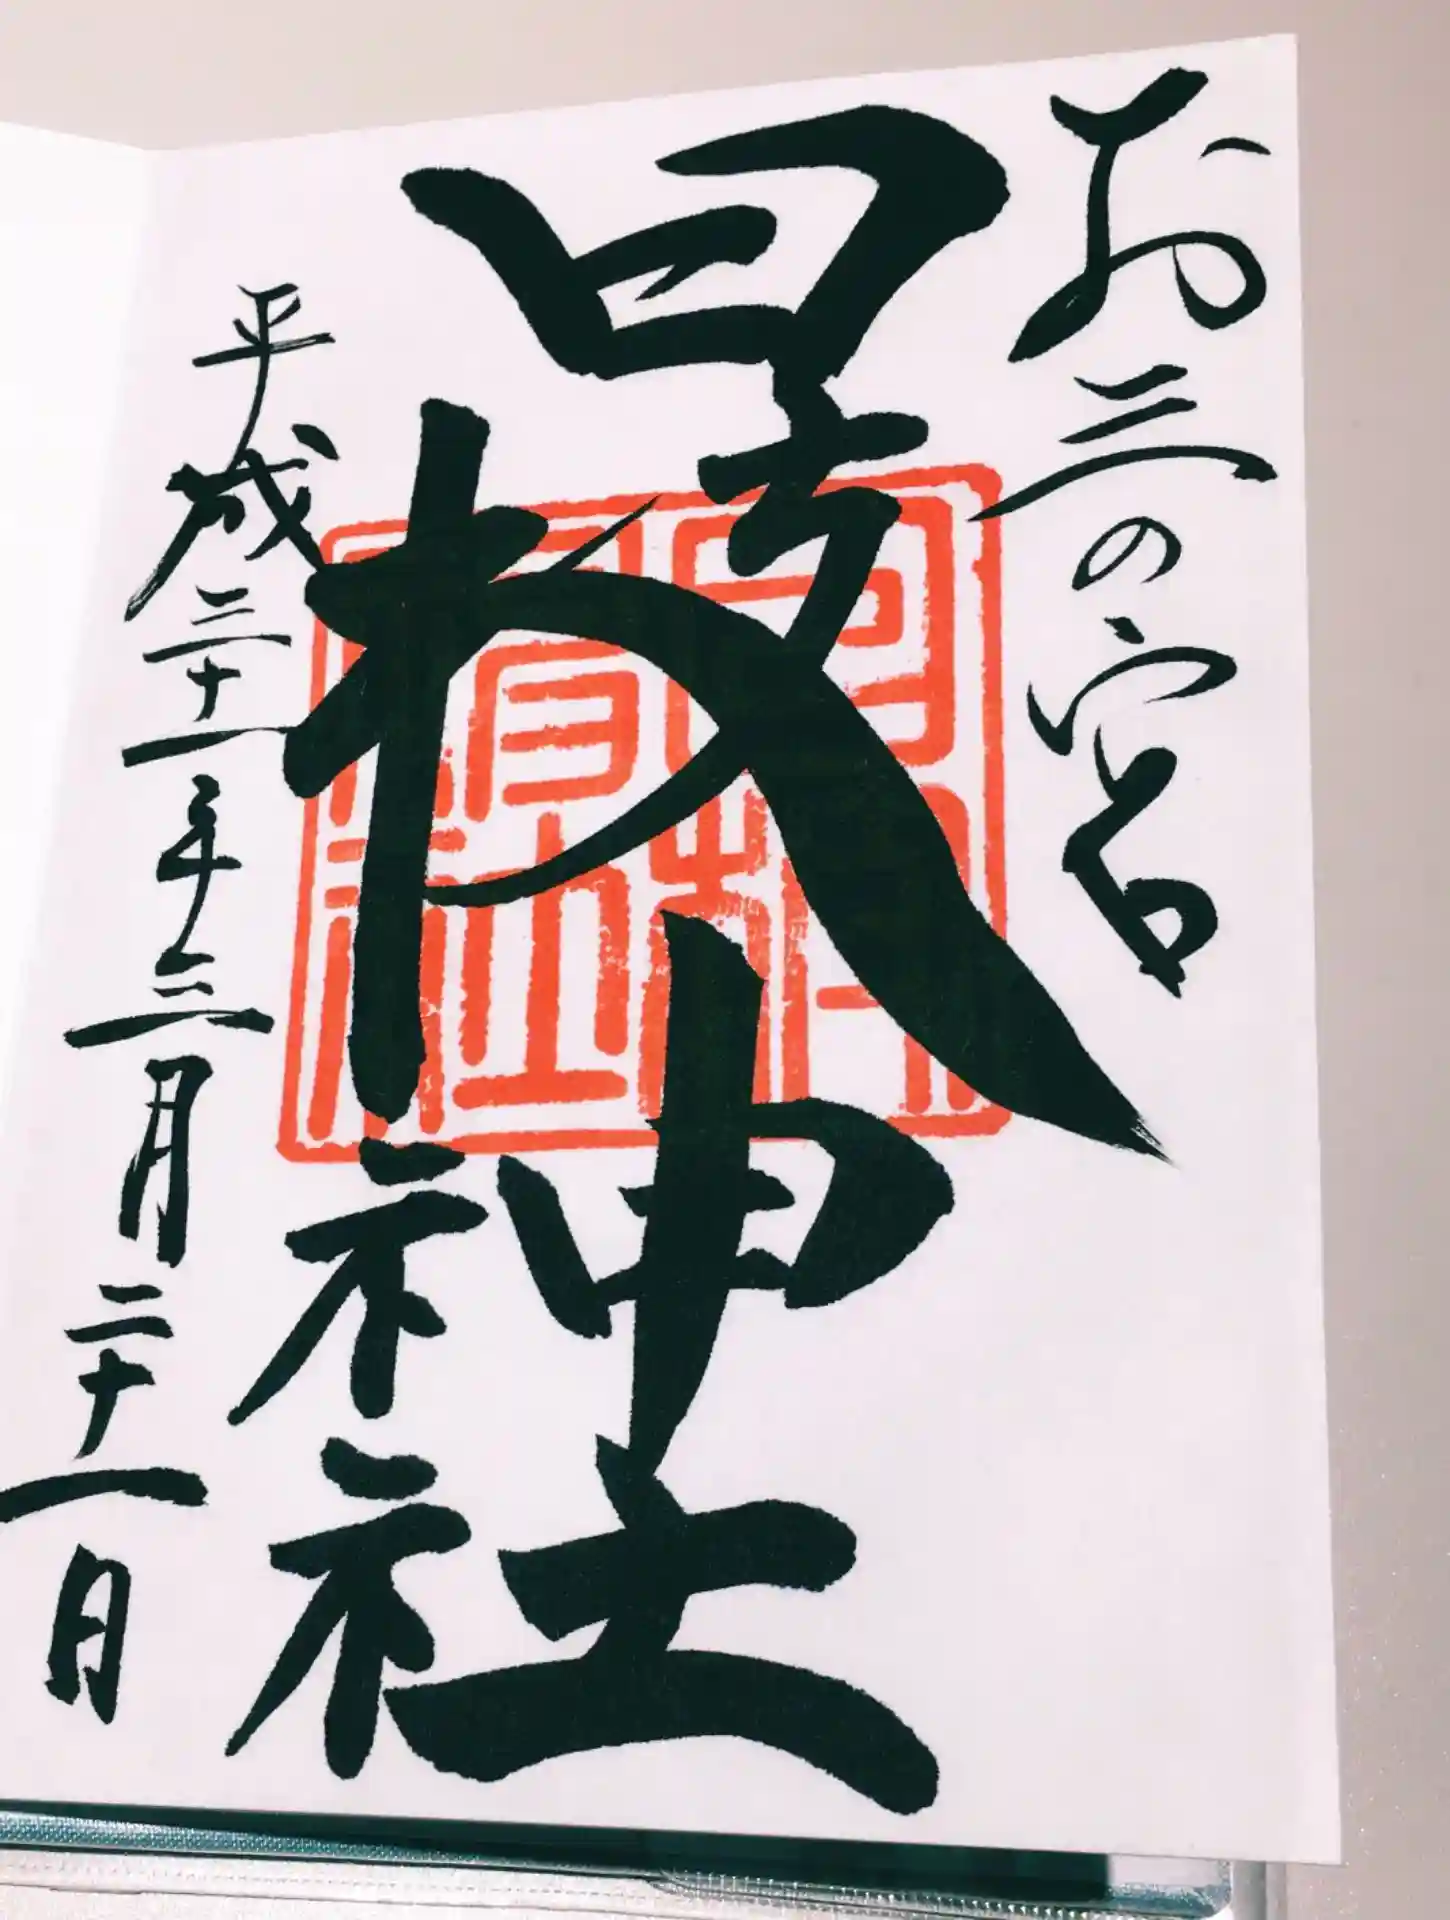 お三の宮
日枝神社
平成三十一年三月二十一日